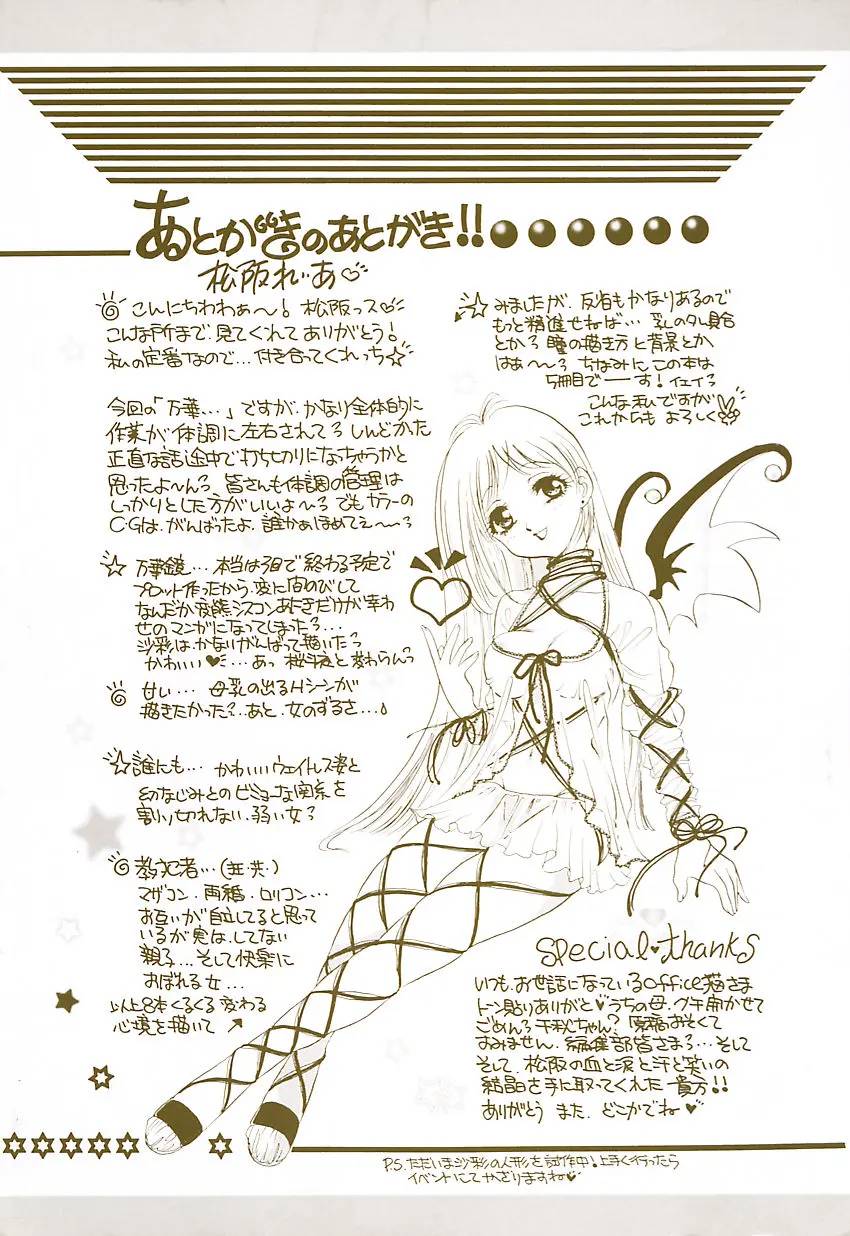 あとがきのあとがき!!
松阪れぃあ♡
こんにちわわぁ〜! 松阪っス♡
こんな所まで、見てくれてありがとう!
私の定番なので…付き合ってくれっち☆
今回の「万華…」ですが、かなり全体的に
作業が体調に左右されてろ しんどかた
正直な話途中で打ち切りになっちゃうかと
思ったよ〜んろ 皆さんも体調の管理は
しっかりとした方がいいよ〜ろ でもカラーの
C・Gは、がんばったよ、誰かぁほめてぇ〜〜ろ
☆万華鏡…本当は3回で終わる予定で
プロット作ったから、変に間のびして
なんだか変態シスコンあにきだけが幸わ
せのマンガになってしまったろ…
沙彩は、かなりがんばって描いたっ
かわいい♥…あっ 桜手庭と変わらんっ
甘い… 母乳の出るHシーンが
描きたかった?…あと、女のずるさ…♪
☆誰にも… かわいいウェイトレス姿と
幼なじみとのビミョーな関係を
割り切れない、弱い女ろ
マザコン、再婚、ロリコン…
お互いが自立してると思って
いるが実は、してない
親子…そして快楽に
おぼれる女…
以上8本くるくる変わる
心境を描いて↗
☆みましたが、反省もかなりあるので
もっと精進せねば… 乳のタレ具合
とかろ 瞳の描き方と背景とか
はぁ〜〜ろ ちなみにこの本は
5冊目でーーす! イェイろ
こんな私ですが
これからも よろしく
special♥thanks
いつも、お世話になっているOffice猫さま
トーン貼りありがと♥うちの母、グチ聞かせて
ごめんろ千秋ちゃん? 原稿おそくて
すみません、編集部皆さまろ…そして
そして、松阪の血と涙と汗と笑いの
結晶を手に取ってくれた貴方!!
ありがとう また、どこかでね♥
P.S.ただいま沙彩の人形を試作中!上手く行ったら
イベントにてかざりますね♡